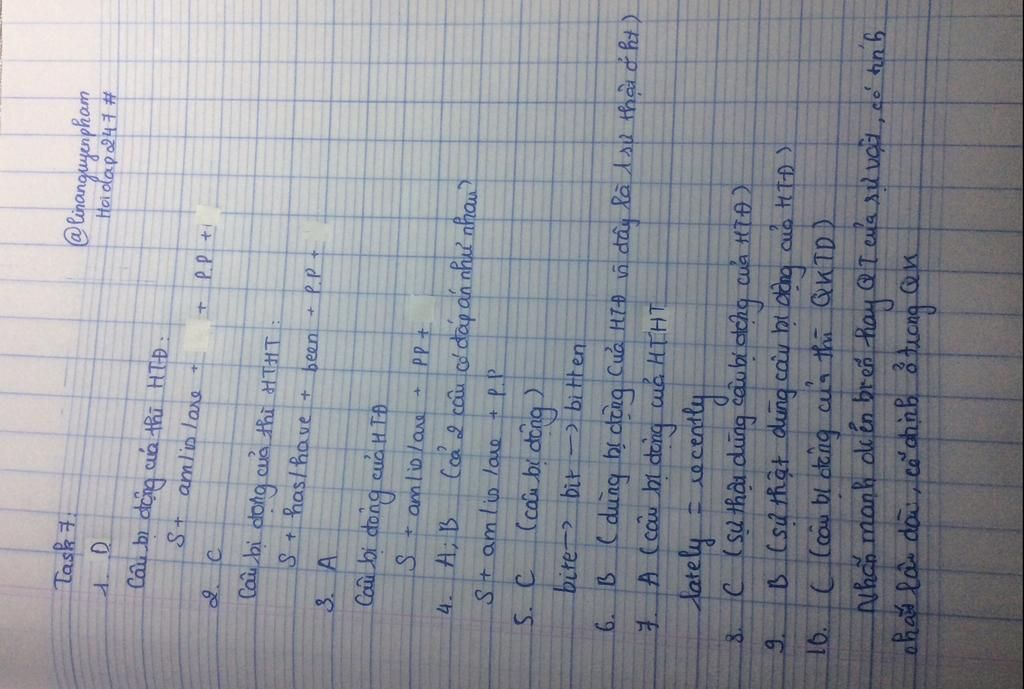 @linanguyenpham
Hoidap247#
Task 7:
1. D
Câu bị động của thì HTĐ:
S + am/is/are + + P.P +
2. C
Câu bị động của thì HTHT:
S + has/have + been + P.P +
3. A
Câu bị động của HTĐ
S + am/is/are + PP +
4. A;B (Cả 2 câu có đáp án như nhau)
S + am/is/are + P.P
5. C (câu bị động)
bite → bit → bitten
6. B (dùng bị động của HTĐ vì đây là 1 sự thật ở ht)
7. A (câu bị động của HTHT
lately = recently
8. C (sự thật dùng câu bị động của HTĐ)
9. B (sự thật dùng câu bị động của HTĐ)
10. C (câu bị động của thì QKTD)
Nhấn mạnh diễn biến hay QT của sự vật, có tính
chất lâu dài, cố định ở trong QK